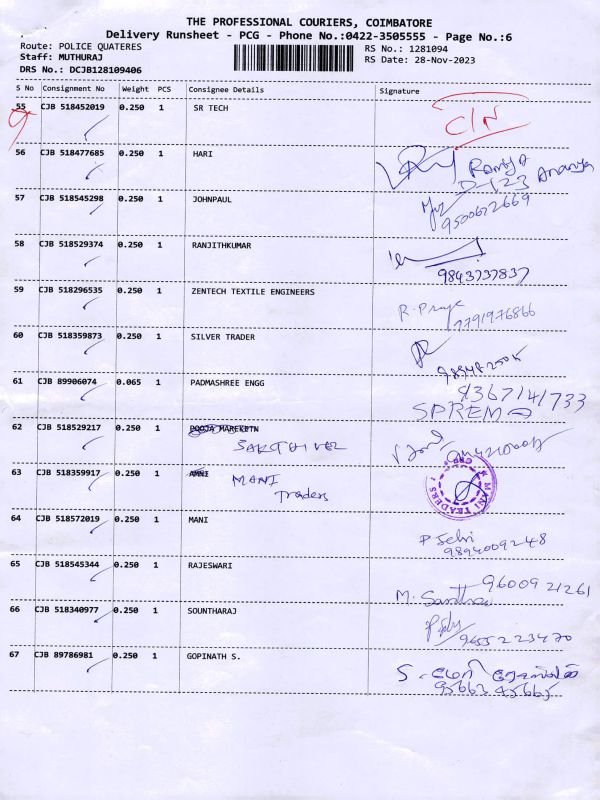 THE PROFESSIONAL COURIERS, COIMBATORE
Delivery Runsheet - PCG - Phone No.:0422-3505555 - Page No.:6
Route: POLICE QUATERES RS No.: 1281094
Staff: MUTHURAJ RS Date: 28-Nov-2023
DRS No.: DCJB128109406
S No Consignment No Weight PCS Consignee Details Signature
55 CJB 518452019 0.250 1 SR TECH C/N
56 CJB 518477685 0.250 1 HARI Ramya Ananya
D-123
57 CJB 518545298 0.250 1 JOHNPAUL
9500672669
58 CJB 518529374 0.250 1 RANJITHKUMAR
9843737837
59 CJB 518296535 0.250 1 ZENTECH TEXTILE ENGINEERS
7791976866
60 CJB 518359873 0.250 1 SILVER TRADER
61 CJB 89906074 0.065 1 PADMASHREE ENGG 9367141733
SPREMA
62 CJB 518529217 0.250 1 POOJA MAREKETN
SAKTHIVEL
63 CJB 518359917 0.250 1 AMNI MANI
Traders
MANI TRADERS
64 CJB 518572019 0.250 1 MANI P Selvi
9894009248
65 CJB 518545344 0.250 1 RAJESWARI 9600921261
M.
66 CJB 518340977 0.250 1 SOUNTHARAJ
9655223470
67 CJB 89786981 0.250 1 GOPINATH S. S. மேரி
95663 45665